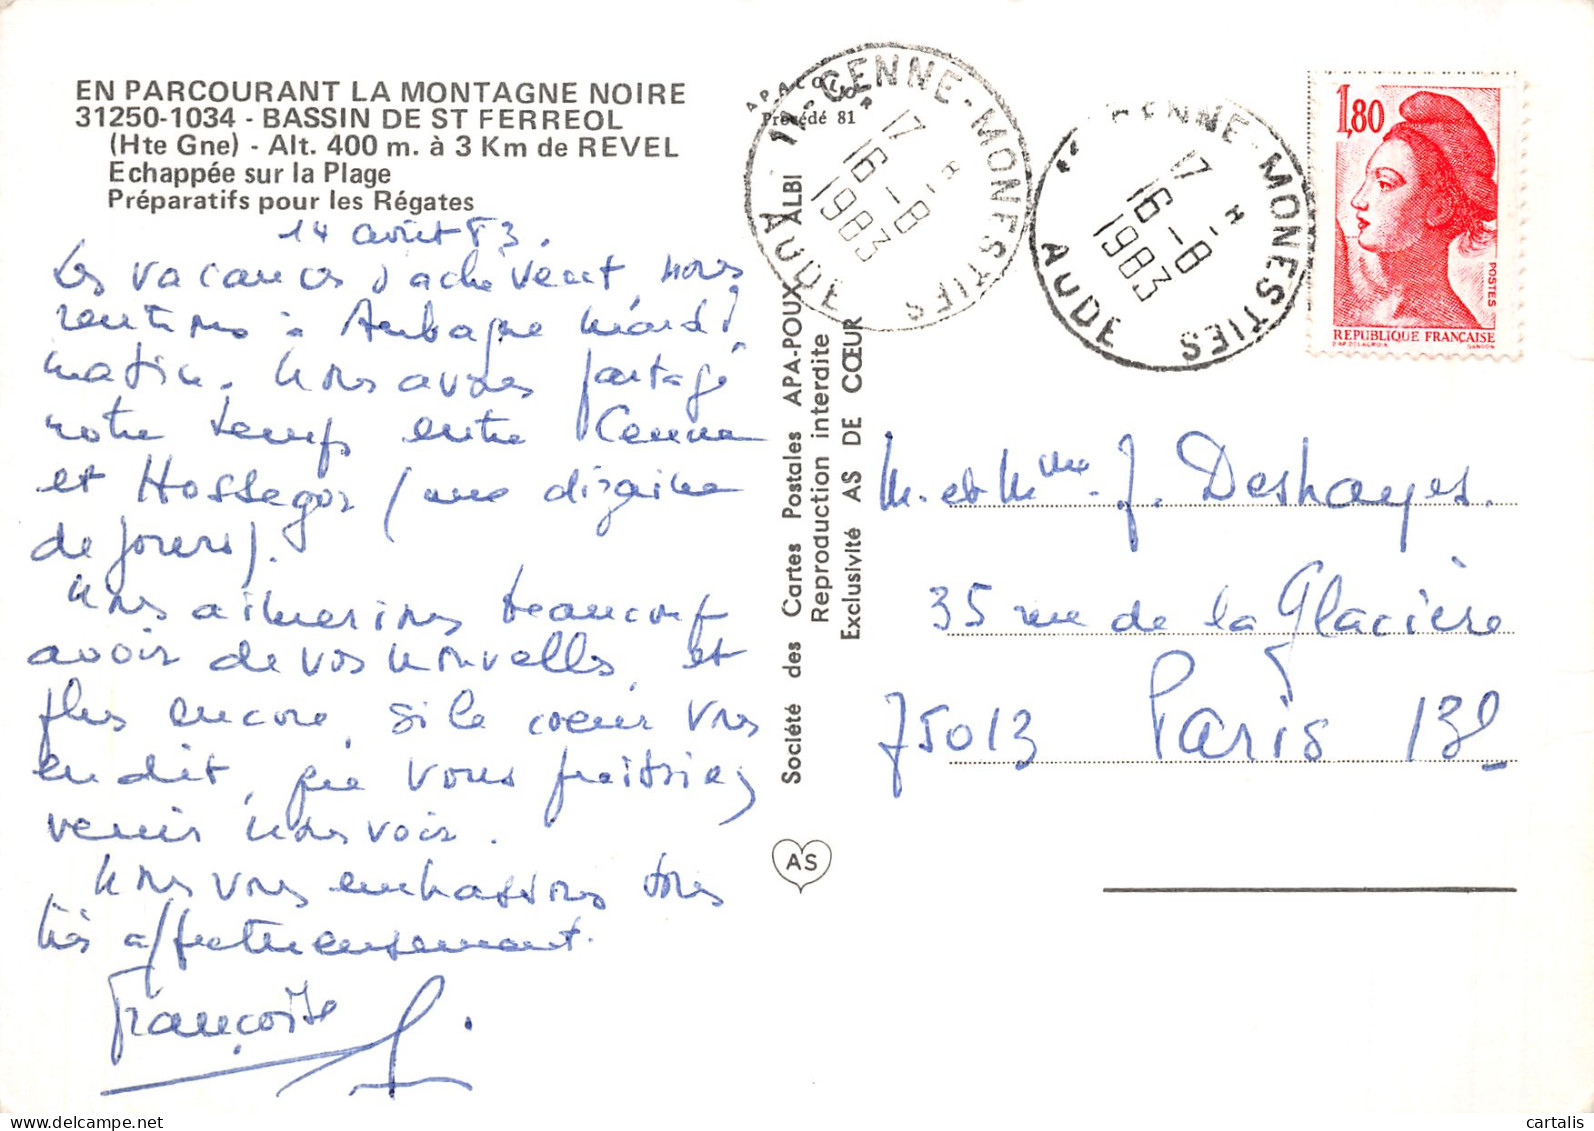 EN PARCOURANT LA MONTAGNE NOIRE
31250-1034 - BASSIN DE ST FERREOL
(Hte Gne) - Alt. 400 m. à 3 Km de REVEL
Echappée sur la Plage
Préparatifs pour les Régates
14 août 83.
Les vacances s'achèvent, nous
rentrons à Aubagne mardi
matin. Nous avons partagé
notre temps entre Cenne
et Hossegor (une dizaine
de jours).
Nous aimerions beaucoup
avoir de vos nouvelles, et
plus encore, si le coeur vous
en dit, que vous puissiez
venir nous voir.
Nous vous embrassons tous
très affectueusement.
Françoise
APACOLOR
Procédé 81
Société des Cartes Postales APA-POUX ALBI
Reproduction interdite
Exclusivité AS DE CŒUR
AS
11 CENNE-MONESTIES
17 H
16-8-
1983
AUDE
11 CENNE-MONESTIES
17 H
16-8-
1983
AUDE
1,80
POSTES
REPUBLIQUE FRANÇAISE
D'AP. DELACROIX GANDON
M. et Mme. J. Deshayes.
35 rue de la Glacière
75013 Paris 13e
delcampe.net
cartalis